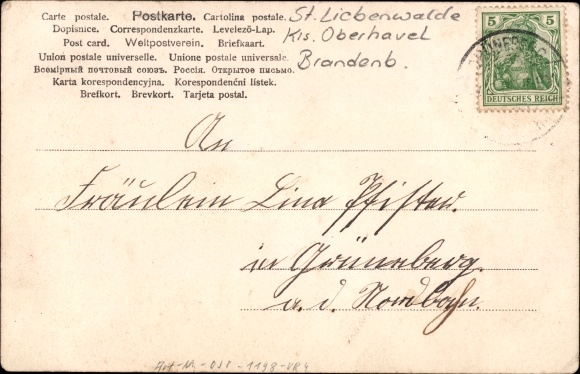 Carte postale. Postkarte. Cartolina postale.
Dopisnice. Correspondenzkarte. Levelező-Lap.
Post card. Weltpostverein. Briefkaart.
Union postale universelle. Unione postale universale.
Всемірный почтовый союзъ. Россія. Открытое письмо.
Karta korespondencyjna. Korespondenční lístek.
Brefkort. Brevkort. Tarjeta postal.
St. Liebenwalde
Krs. Oberhavel
Brandenb.
5 5
DEUTSCHES REICH
An
Fräulein Lina Pfister.
in Grüneberg.
a. d. Nordbahn.